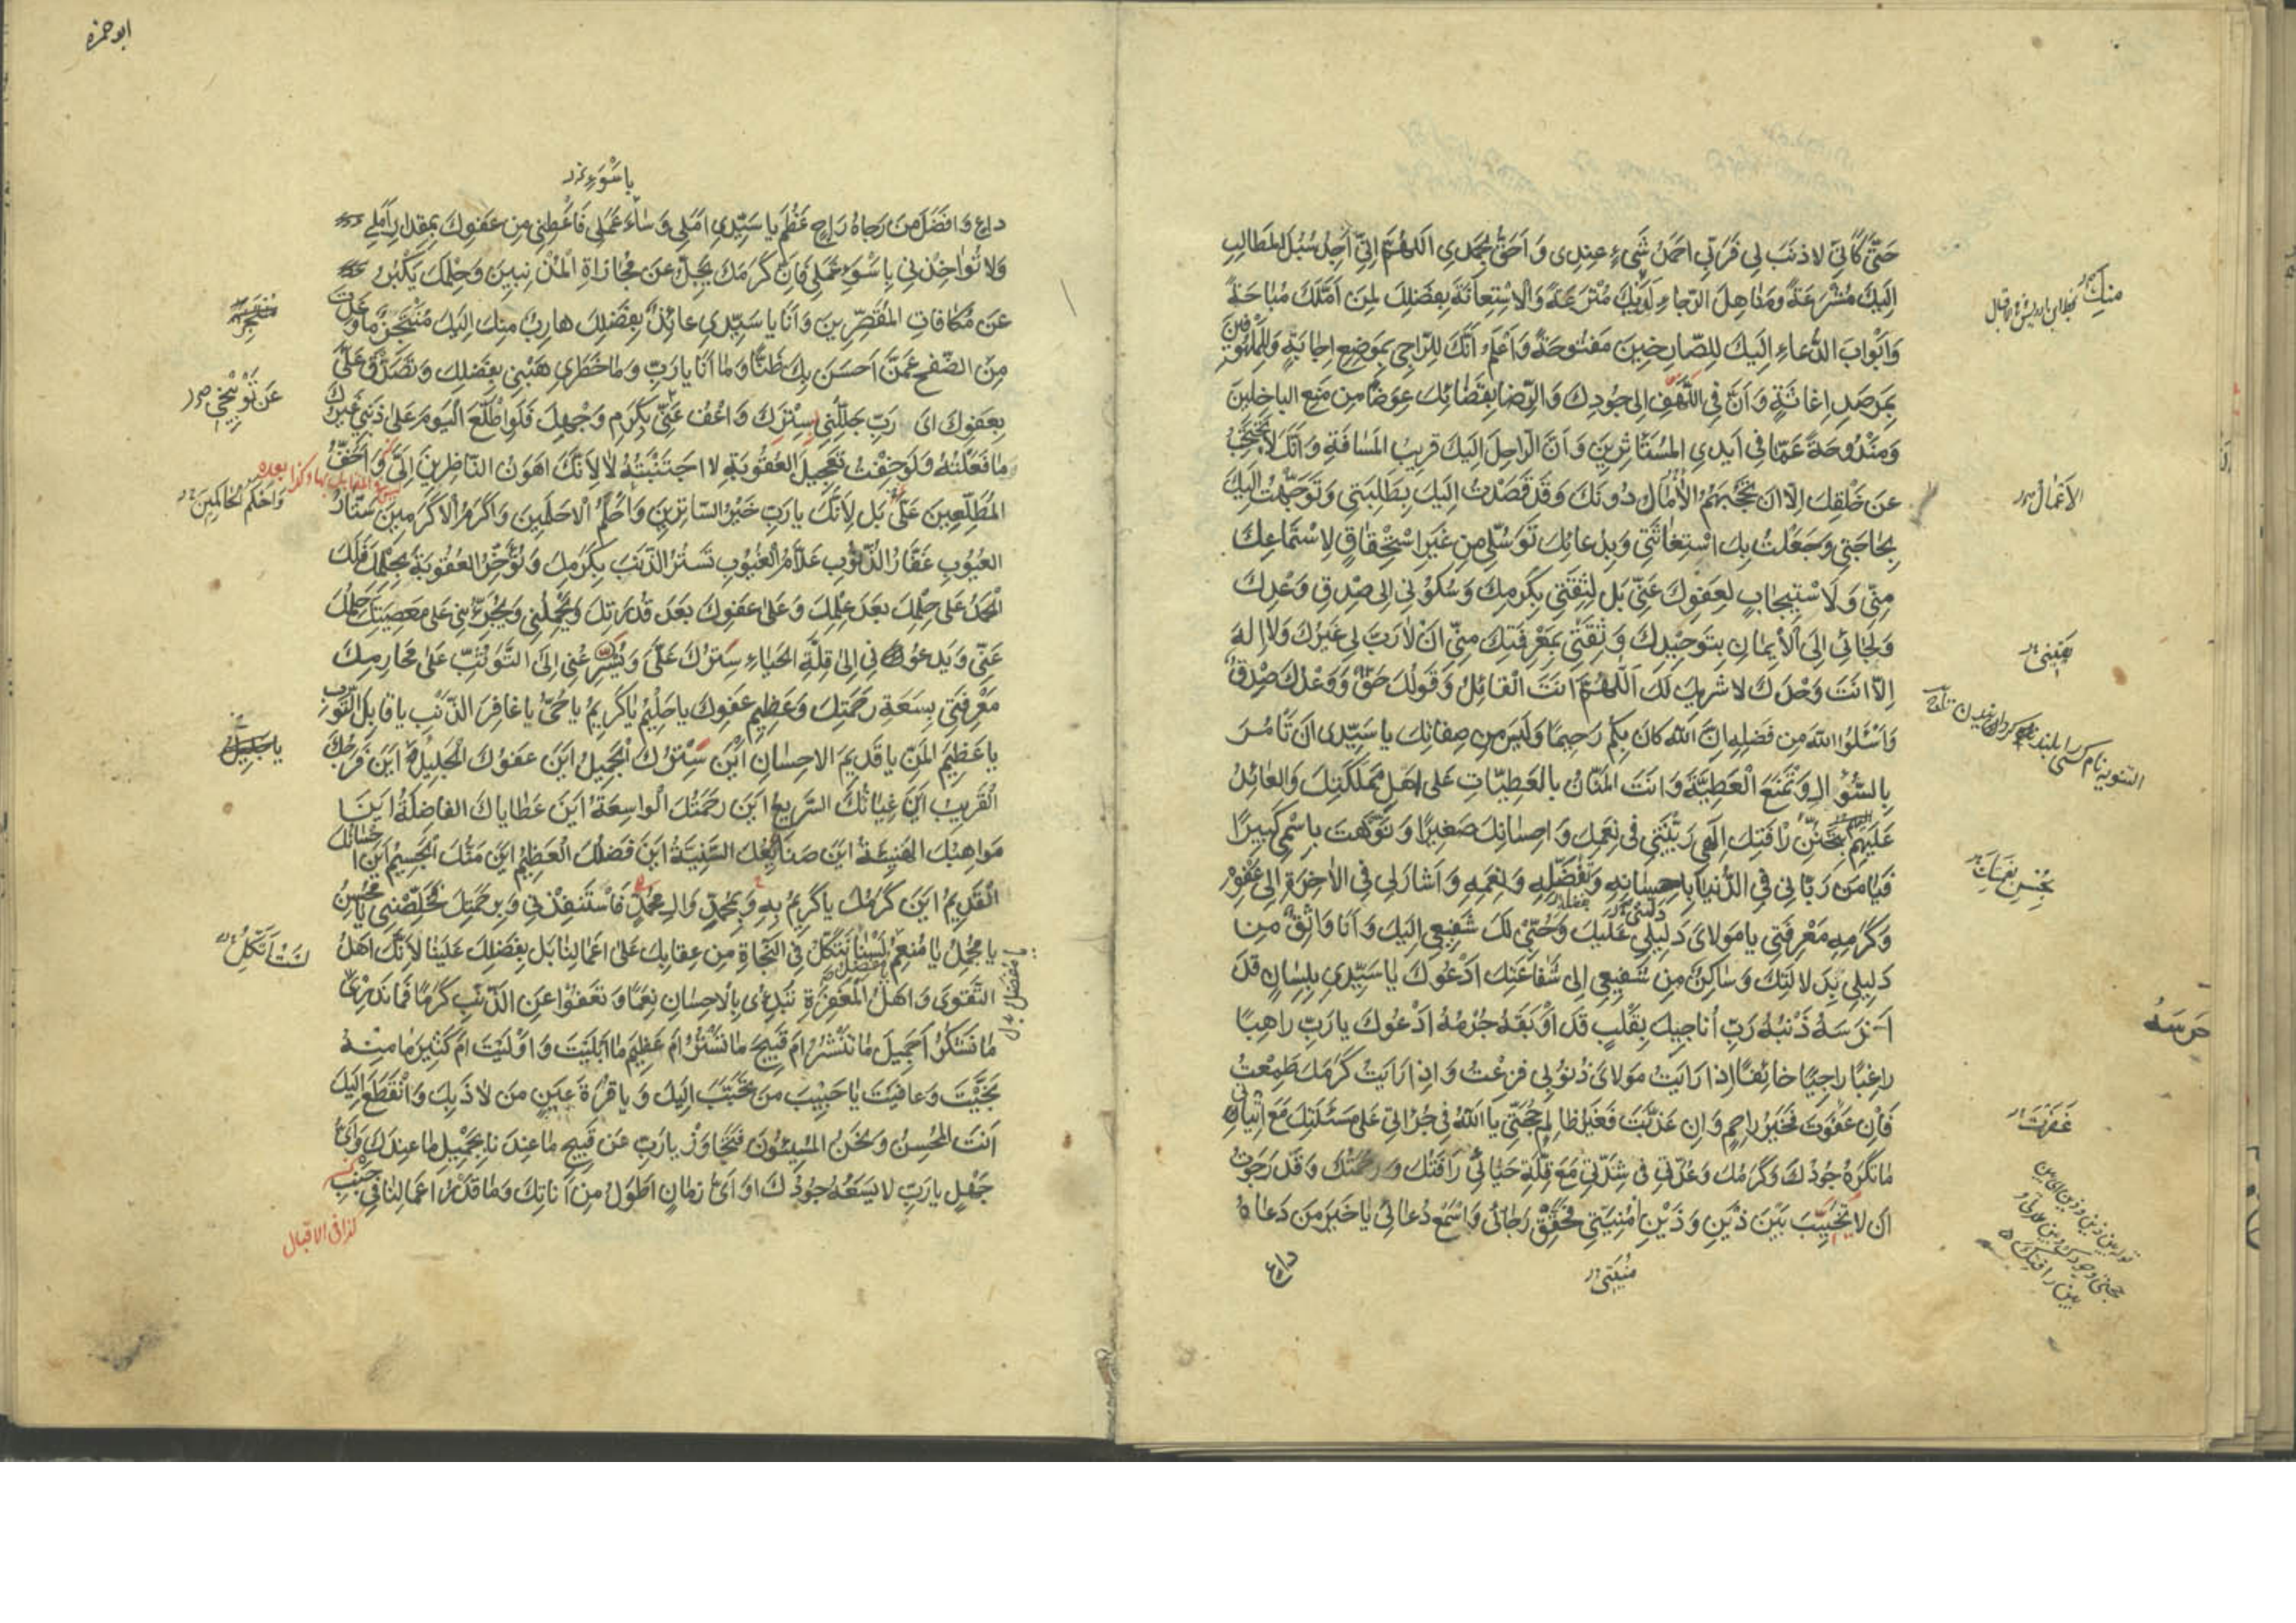 حَتّى كَاَنّي لا ذَنبَ لي فَرَبّي اَحمَدُ شَيءٍ عِندِي وَ اَحَقُّ بِحَمدِي اَللّهُمَّ اِنّي اَجِدُ سُبُلَ المَطالِبِ
اِلَيكَ مُشرَعَةً وَمَناهِلَ الرَّجاءِ لَدَيكَ مُترَعَةً وَالاِستِعانَةَ بِفَضلِكَ لِمَن اَمَّلَكَ مُباحَةً
وَ اَبوابَ الدُّعاءِ اِلَيكَ لِلصّارِخينَ مَفتُوحَةً وَاَعلَمُ اَنَّكَ لِلرّاجي بِمَوضِعِ اِجابَةٍ وَلِلمَلهُوفينَ
بِمَرصَدِ اِغاثَةٍ وَ اَنَّ فِي اللَّهفِ اِلى جُودِكَ وَالرِّضا بِقَضائِكَ عِوَضًا مِن مَنعِ الباخِلينَ
وَمَندُوحَةً عَمّا في اَيدِي المُستَأثِرينَ وَ اَنَّ الرّاحِلَ اِلَيكَ قَريبُ المَسافَةِ وَ اَنَّكَ لا تَحتَجِبُ
عَن خَلقِكَ اِلّا اَن تَحجُبَهُمُ الآمالُ دُونَكَ وَقَد قَصَدتُ اِلَيكَ بِطَلِبَتي وَتَوَجَّهتُ اِلَيكَ
بِحاجَتي وَجَعَلتُ بِكَ استِغاثَتي وَبِدُعائِكَ تَوَسُّلي مِن غَيرِ استِحقاقٍ لاستِماعِكَ
مِنّي وَ لَا استيجابٍ لِعَفوِكَ عَنّي بَل لِثِقَتي بِكَرَمِكَ وَسُكُوني اِلى صِدقِ وَعدِكَ
وَلَجائي اِلَى الاِيمانِ بِتَوحيدِكَ وَ ثِقَتي بِمَعرِفَتِكَ مِنّي اَن لا رَبَّ لي غَيرُكَ وَلا اِلهَ
اِلّا اَنتَ وَحدَكَ لا شَريكَ لَكَ اَللّهُمَّ اَنتَ القائِلُ وَ قَولُكَ حَقٌّ وَ وَعدُكَ صِدقٌ
وَاسئَلُوا اللهَ مِن فَضلِهِ اِنَّ اللهَ كانَ بِكُم رَحيمًا وَلَيسَ مِن صِفاتِكَ يا سَيِّدي اَن تَأمُرَ
بِالسُّؤالِ وَتَمنَعَ العَطِيَّةَ وَ اَنتَ المَنّانُ بِالعَطِيّاتِ عَلى اَهلِ مَملَكَتِكَ وَالعائِدُ
عَلَيهِم بِتَحَنُّنِ رَأفَتِكَ اِلهي رَبَّيتَني في نِعَمِكَ وَ اِحسانِكَ صَغيرًا وَ نَوَّهتَ بِاسمي كَبيرًا
فَيا مَن رَبّاني فِي الدُّنيا بِاِحسانِهِ وَ تَفَضُّلِهِ وَ نِعَمِهِ وَ اَشارَ لي فِي الآخِرَةِ اِلى عَفوِهِ
وَكَرَمِهِ مَعرِفَتي يا مَولايَ دَليلي عَلَيكَ وَحُبّي لَكَ شَفيعي اِلَيكَ وَ اَنا واثِقٌ مِن
دَليلي بِدَلالَتِكَ وَ ساكِنٌ مِن شَفيعي اِلى شَفاعَتِكَ اَدعُوكَ يا سَيِّدي بِلِسانٍ قَد
اَخرَسَهُ ذَنبُهُ رَبِّ اُناجيكَ بِقَلبٍ قَد اَوبَقَهُ جُرمُهُ اَدعُوكَ يا رَبِّ راهِبًا
راغِبًا راجِيًا خائِفًا اِذا رَاَيتُ مَولايَ ذُنُوبي فَزِعتُ وَ اِذا رَاَيتُ كَرَمَكَ طَمِعتُ
فَاِن عَفَوتَ فَخَيرُ راحِمٍ وَ اِن عَذَّبتَ فَغَيرُ ظالِمٍ حُجَّتي يا اَللهُ في جُراَتي عَلى مَسئَلَتِكَ مَعَ اِتياني
ما تَكرَهُ جُودُكَ وَ كَرَمُكَ وَ عُدَّتي في شِدَّتي مَعَ قِلَّةِ حَيائي رَأفَتُكَ وَ رَحمَتُكَ وَ قَد رَجَوتُ
اَن لا تُخَيِّبَ بَينَ ذَينِ وَ ذَينِ مُنيَتي فَحَقِّق رَجائي وَاسمَع دُعائي يا خَيرَ مَن دَعاهُ
داعٍ
مُنيَتي
الاَعمالُ
حَرَسَهُ
غَفَرتَ
ابو حمزه
داعٍ وَ اَفضَلَ مَن رَجاهُ راجٍ عَظُمَ يا سَيِّدي اَمَلي وَ ساءَ عَمَلي فَاَعطِني مِن عَفوِكَ بِمِقدارِ اَمَلي
وَلا تُؤاخِذني بِاَسوَءِ عَمَلي فَاِنَّ كَرَمَكَ يَجِلُّ عَن مُجازاةِ المُذنِبينَ وَحِلمَكَ يَكبُرُ
عَن مُكافاتِ المُقَصِّرينَ وَ اَنَا يا سَيِّدي عائِذٌ بِفَضلِكَ هارِبٌ مِنكَ اِلَيكَ مُتَنَجِّزٌ ما وَعَدتَ
مِنَ الصَّفحِ عَمَّن اَحسَنَ بِكَ ظَنًّا وَ ما اَنَا يا رَبِّ وَ ما خَطَري هَبني بِفَضلِكَ وَ تَصَدَّق عَلَيَّ
بِعَفوِكَ اَي رَبِّ جَلِّلني بِسِترِكَ وَ اعفُ عَن تَوبيخي بِكَرَمِ وَجهِكَ فَلَوِ اطَّلَعَ اليَومَ عَلى ذَنبي غَيرُكَ
ما فَعَلتُهُ وَلَو خِفتُ تَعجيلَ العُقُوبَةِ لَاجتَنَبتُهُ لا لِاَنَّكَ اَهوَنُ النّاظِرينَ اِلَيَّ وَ اَخَفُّ
المُطَّلِعينَ عَلَيَّ بَل لِاَنَّكَ يا رَبِّ خَيرُ السّاتِرينَ وَ اَحلَمُ الاَحلَمينَ وَ اَكرَمُ الاَكرَمينَ سَتّارُ
العُيُوبِ غَفّارُ الذُّنُوبِ عَلّامُ الغُيُوبِ تَستُرُ الذَّنبَ بِكَرَمِكَ وَ تُؤَخِّرُ العُقُوبَةَ بِحِلمِكَ فَلَكَ
الحَمدُ عَلى حِلمِكَ بَعدَ عِلمِكَ وَ عَلى عَفوِكَ بَعدَ قُدرَتِكَ وَ يَحمِلُني وَ يُجَرِّئُني عَلى مَعصِيَتِكَ حِلمُكَ
عَنّي وَ يَدعُوني اِلى قِلَّةِ الحَياءِ سِترُكَ عَلَيَّ وَ يُسرِعُني اِلَى التَّوَثُّبِ عَلى مَحارِمِكَ
مَعرِفَتي بِسَعَةِ رَحمَتِكَ وَعَظيمِ عَفوِكَ يا حَليمُ يا كَريمُ يا حَيُّ يا غافِرَ الذَّنبِ يا قابِلَ التَّوبِ
يا عَظيمَ المَنِّ يا قَديمَ الاِحسانِ اَينَ سِترُكَ الجَميلُ اَينَ عَفوُكَ الجَليلُ اَينَ فَرَجُكَ
القَريبُ اَينَ غِياثُكَ السَّريعُ اَينَ رَحمَتُكَ الواسِعَةُ اَينَ عَطاياكَ الفاضِلَةُ اَينَ
مَواهِبُكَ الهَنيئَةُ اَينَ صَنائِعُكَ السَّنِيَّةُ اَينَ فَضلُكَ العَظيمُ اَينَ مَنُّكَ الجَسيمُ اَينَ اِحسانُكَ
القَديمُ اَينَ كَرَمُكَ يا كَريمُ بِهِ وَ بِمُحَمَّدٍ وَ الِ مُحَمَّدٍ فَاستَنقِذني وَ بِرَحمَتِكَ فَخَلِّصني يا مُحسِنُ
يا مُجمِلُ يا مُنعِمُ يا مُفضِلُ لَسنا نَتَّكِلُ فِي النَّجاةِ مِن عِقابِكَ عَلى اَعمالِنا بَل بِفَضلِكَ عَلَينا لِاَنَّكَ اَهلُ
التَّقوى وَ اَهلُ المَغفِرَةِ تُبدِئُ بِالاِحسانِ نِعَمًا وَ تَعفُو عَنِ الذَّنبِ كَرَمًا فَما نَدري
ما نَشكُرُ اَجَميلَ ما تَنشُرُ اَم قَبيحَ ما تَستُرُ اَم عَظيمَ ما اَبلَيتَ وَ اَولَيتَ اَم كَثيرَ ما مِنهُ
نَجَّيتَ وَ عافَيتَ يا حَبيبَ مَن تَحَبَّبَ اِلَيكَ وَ يا قُرَّةَ عَينِ مَن لاذَ بِكَ وَ انقَطَعَ اِلَيكَ
اَنتَ المُحسِنُ وَ نَحنُ المُسيئُونَ فَتَجاوَز يا رَبِّ عَن قَبيحِ ما عِندَنا بِجَميلِ ما عِندَكَ وَ اَيُّ
جَهلٍ يا رَبِّ لا يَسَعُهُ جُودُكَ اَو اَيُّ زَمانٍ اَطوَلُ مِن اَناتِكَ وَ ما قَدرُ اَعمالِنا في جَنبِ
عَن تَوبيخي
وَاَحكَمُ الحاكِمينَ
لَستُ اَتَّكِلُ
يا مُفضِلُ
كذا في الاقبال